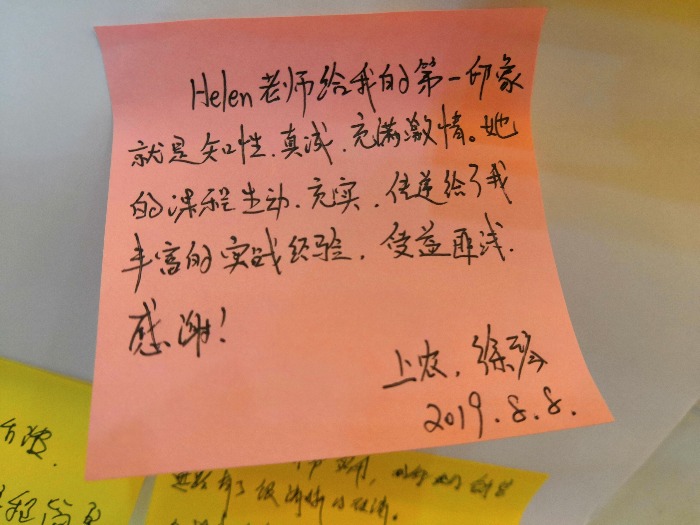 Helen老师给我的第一印象
就是知性、真诚、充满激情。她
的课程生动、充实,传递给了我
丰富的实践经验,受益匪浅.
感谢!
上农,徐
2019.8.8.